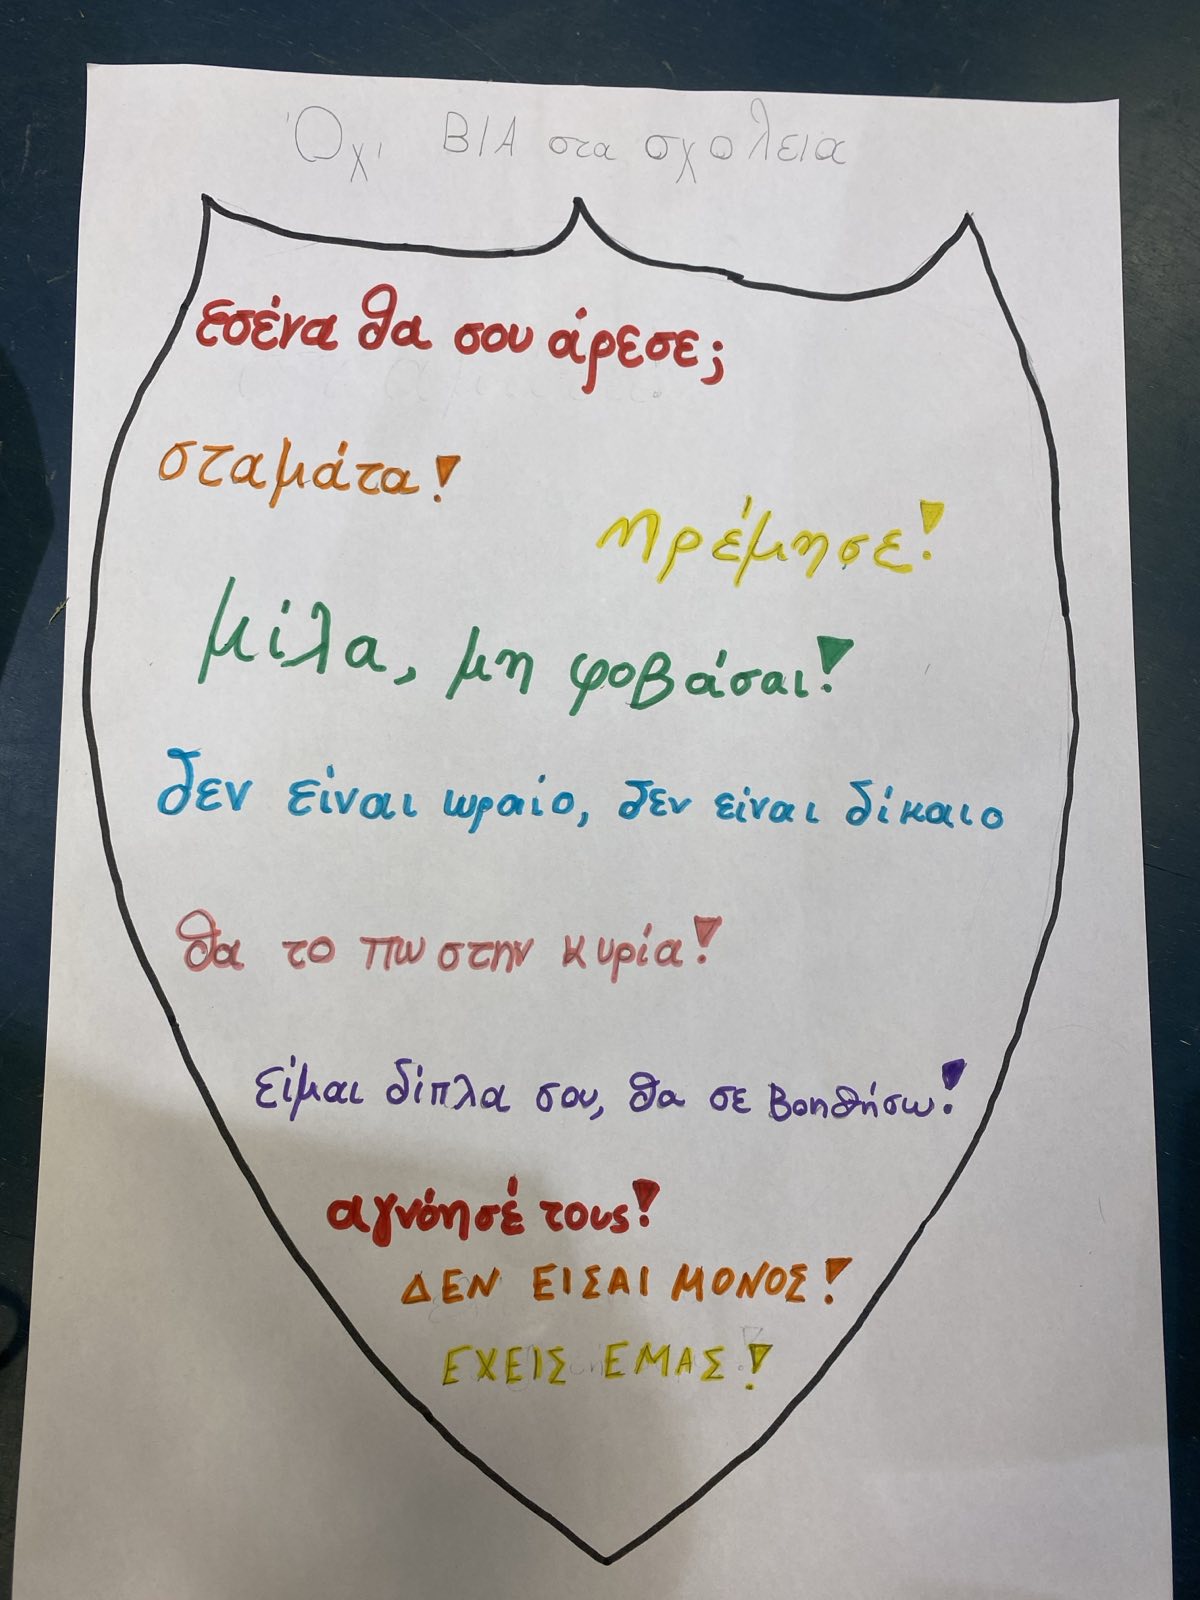 Όχι ΒΙΑ στα σχολεια
εσένα θα σου άρεσε;
σταμάτα!
ηρέμησε!
μίλα, μη φοβάσαι!
δεν είναι ωραίο, δεν είναι δίκαιο
θα το πω στην κυρία!
είμαι δίπλα σου, θα σε βοηθήσω!
αγνόησέ τους!
ΔΕΝ ΕΙΣΑΙ ΜΟΝΟΣ!
ΕΧΕΙΣ ΕΜΑΣ!